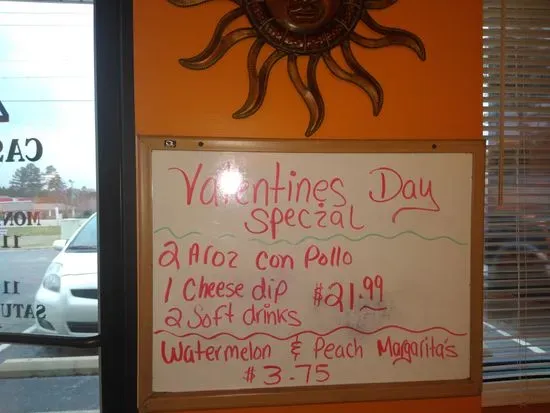 Valentines Day
Special
2 Aroz con Pollo
1 Cheese dip $21.99
2 Soft drinks
Watermelon & Peach Margarita's
$3.75
CAS
MON
11
11
SATU